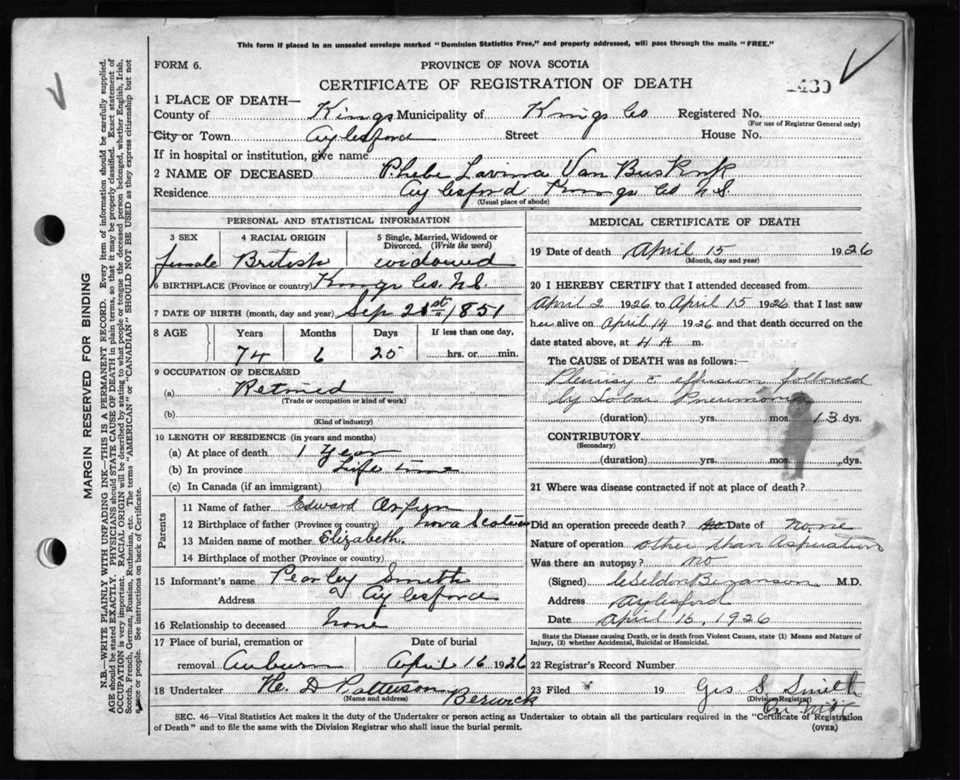 This form if placed in an unsealed envelope marked "Dominion Statistics Free," and properly addressed, will pass through the mails "FREE."
FORM 6.
PROVINCE OF NOVA SCOTIA
CERTIFICATE OF REGISTRATION OF DEATH
1430
1 PLACE OF DEATH—
County of Kings Municipality of Kings Co Registered No.
(For use of Registrar General only)
City or Town Aylesford Street House No.
If in hospital or institution, give name
2 NAME OF DECEASED Phebe Lavinia Van Buskirk
Residence Aylesford Kings Co N S
(Usual place of abode)
PERSONAL AND STATISTICAL INFORMATION
3 SEX 4 RACIAL ORIGIN 5 Single, Married, Widowed or Divorced. (Write the word)
female British widowed
6 BIRTHPLACE (Province or country) Kings Co. N.S.
7 DATE OF BIRTH (month, day and year) Sep 21st 1851
8 AGE Years Months Days If less than one day,
74 6 25 hrs. or min.
9 OCCUPATION OF DECEASED
(a) Retired
(Trade or occupation or kind of work)
(b)
(Kind of industry)
10 LENGTH OF RESIDENCE (in years and months)
(a) At place of death 1 Year
(b) In province Life time
(c) In Canada (if an immigrant)
Parents
11 Name of father Edward
12 Birthplace of father (Province or country) Nova Scotia
13 Maiden name of mother Elizabeth.
14 Birthplace of mother (Province or country)
15 Informant's name Pearley Smith
Address Aylesford
16 Relationship to deceased none
17 Place of burial, cremation or removal Date of burial
Auburn April 16 1926
18 Undertaker H. D Patterson Berwick
(Name and address)
MEDICAL CERTIFICATE OF DEATH
19 Date of death April 15 1926
(Month, day and year)
20 I HEREBY CERTIFY that I attended deceased from
April 2 1926 to April 15 1926 that I last saw
her alive on April 14 1926 and that death occurred on the
date stated above, at 4 A m.
The CAUSE of DEATH was as follows:—
Pleurisy c effusion followed
by Lobar Pneumonia
(duration) yrs. mos. 13 dys.
CONTRIBUTORY
(Secondary)
(duration) yrs. mos. dys.
21 Where was disease contracted if not at place of death?
Did an operation precede death? No Date of None
Nature of operation other than Aspiration
Was there an autopsy? no
(Signed) Bezanson M.D.
Address Aylesford
Date April 15, 1926
State the Disease causing Death, or in death from Violent Causes, state (1) Means and Nature of Injury, (2) whether Accidental, Suicidal or Homicidal.
22 Registrar's Record Number
23 Filed 19 Geo S. Smith
(Division Registrar)
SEC. 46—Vital Statistics Act makes it the duty of the Undertaker or person acting as Undertaker to obtain all the particulars required in the "Certificate of Registration
of Death" and to file the same with the Division Registrar who shall issue the burial permit.
(OVER)
MARGIN RESERVED FOR BINDING
N.B.—WRITE PLAINLY WITH UNFADING INK—THIS IS A PERMANENT RECORD. Every item of information should be carefully supplied.
AGE should be stated EXACTLY. PHYSICIANS should STATE CAUSE OF DEATH in plain terms, so that it may be properly classified. Exact statement of
OCCUPATION is very important. RACIAL ORIGIN will be described by stating to what people or tongue the deceased person belonged, whether English, Irish,
Scotch, French, German, Russian, Ruthenian, etc. The terms "AMERICAN" or "CANADIAN" SHOULD NOT BE USED as they express citizenship but not
a race or people. See instructions on back of Certificate.